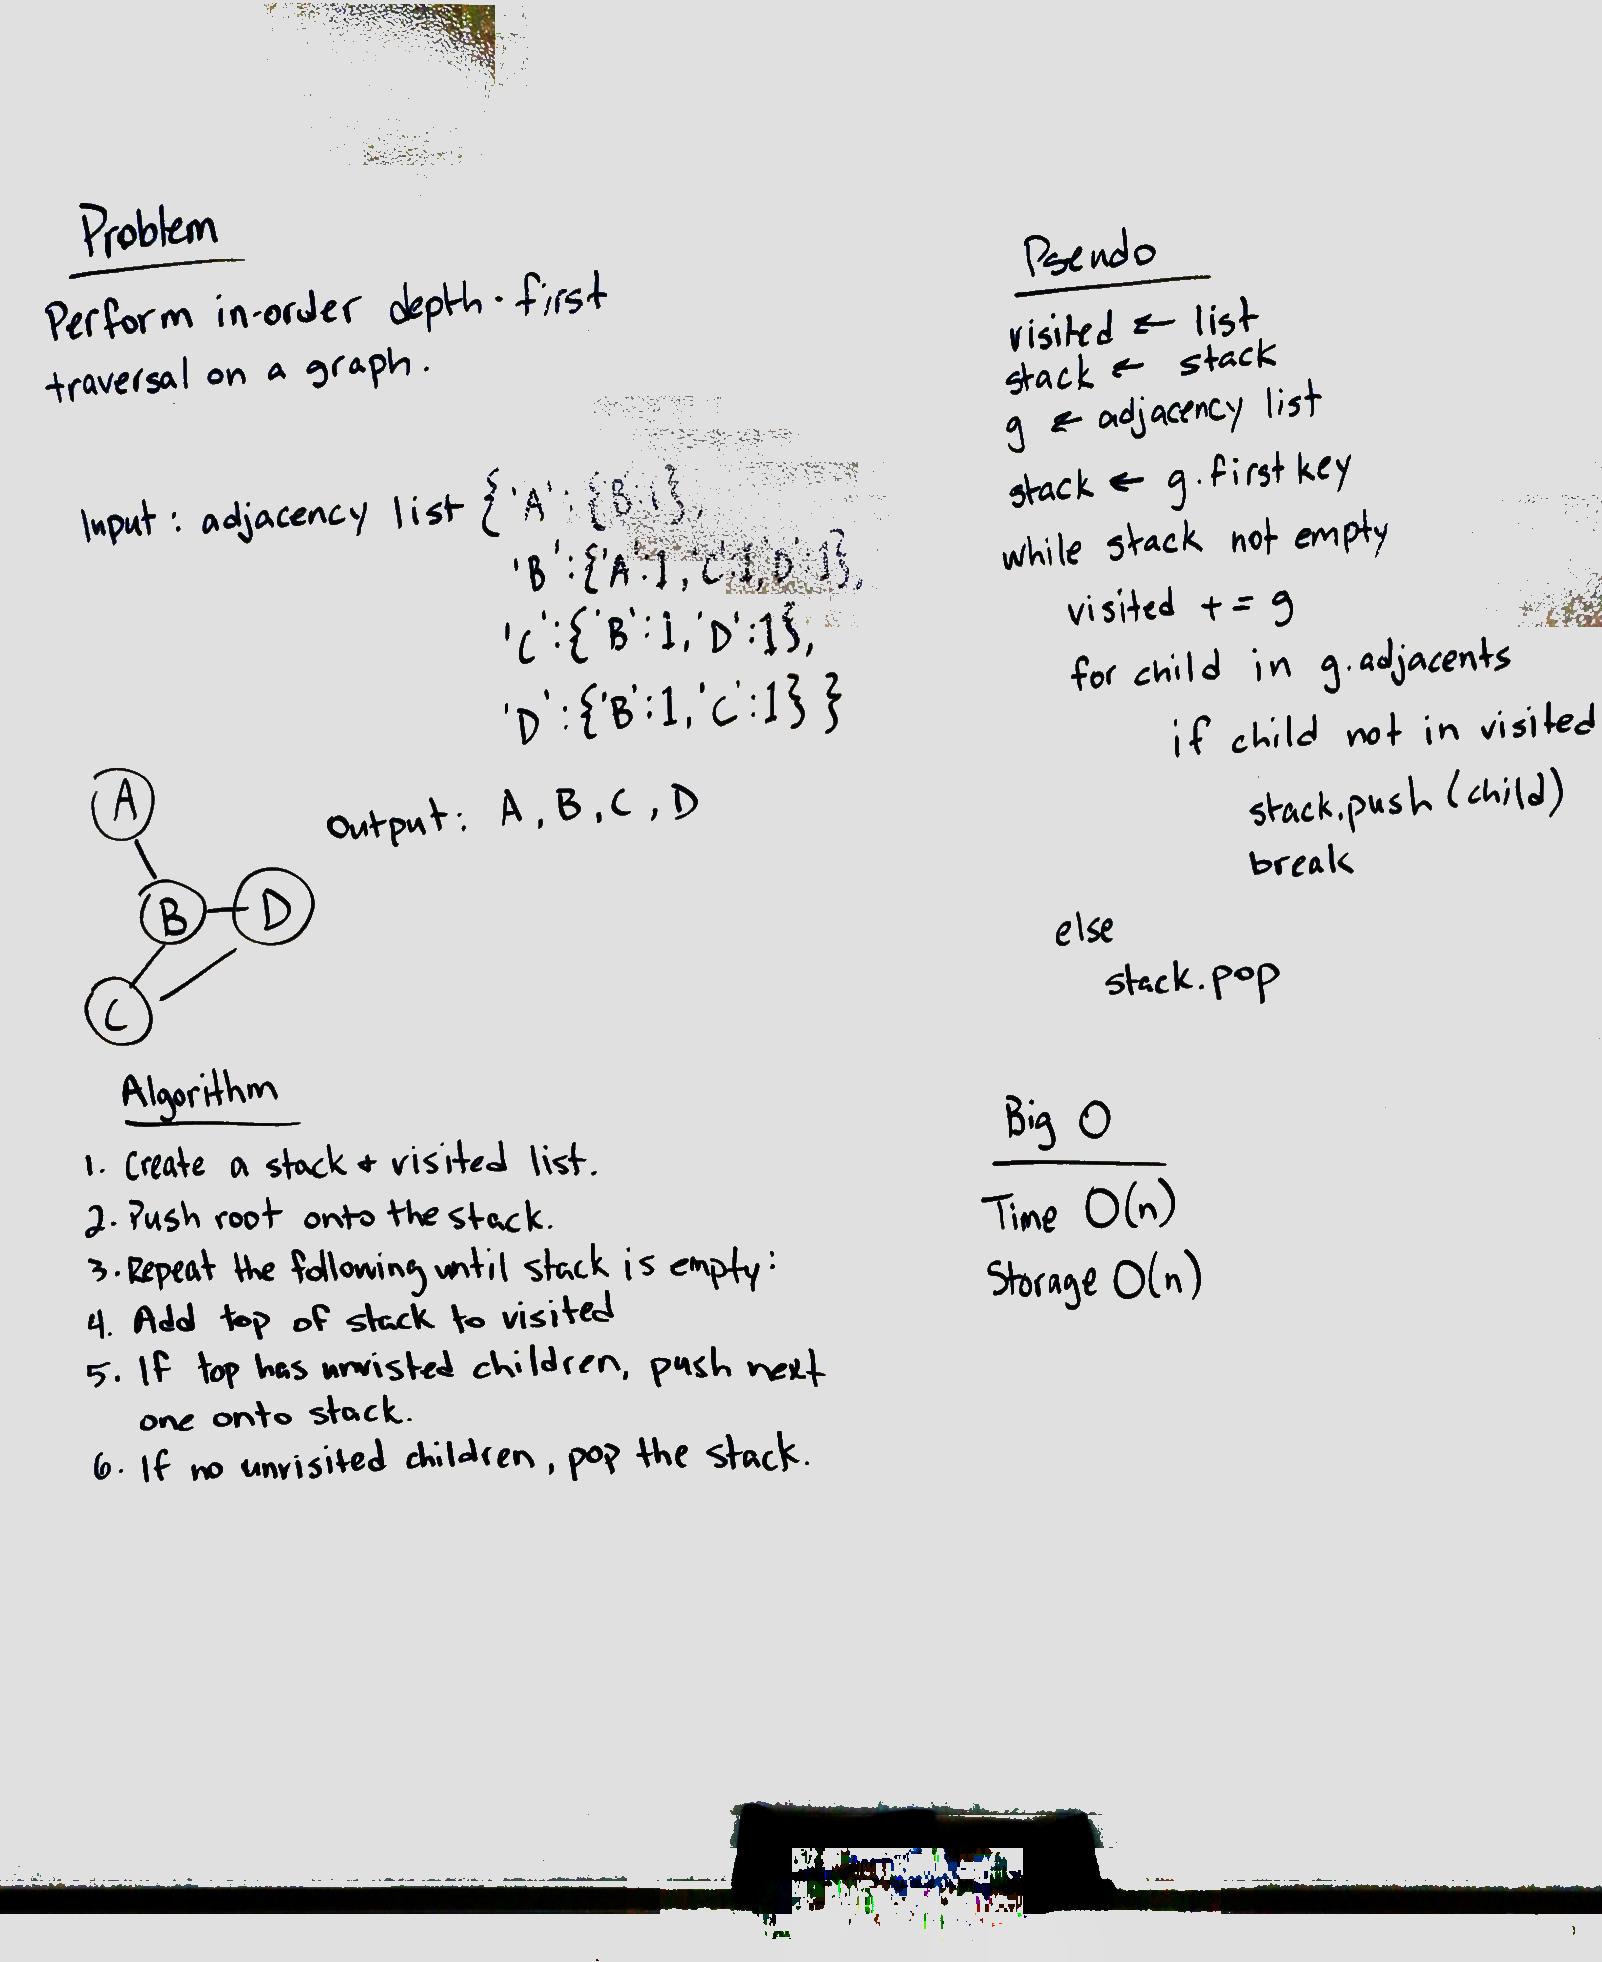 Problem
Perform in-order depth-first
traversal on a graph.
Input: adjacency list {'A': {B:1},
'B':{'A':1,'C':1,'D':1},
'C':{'B':1,'D':1},
'D':{'B':1,'C':1}}
A
B
D
C
Output: A, B, C, D
Algorithm
1. Create a stack & visited list.
2. Push root onto the stack.
3. Repeat the following until stack is empty:
4. Add top of stack to visited
5. If top has unvisted children, push next
one onto stack.
6. If no unvisited children, pop the stack.
Pseudo
visited ← list
stack ← stack
g ← adjacency list
stack ← g.first key
while stack not empty
visited += g
for child in g.adjacents
if child not in visited
stack.push(child)
break
else
stack.pop
Big O
Time O(n)
Storage O(n)